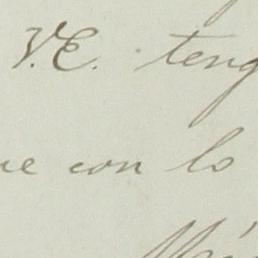 V.E. teng
ue con lo